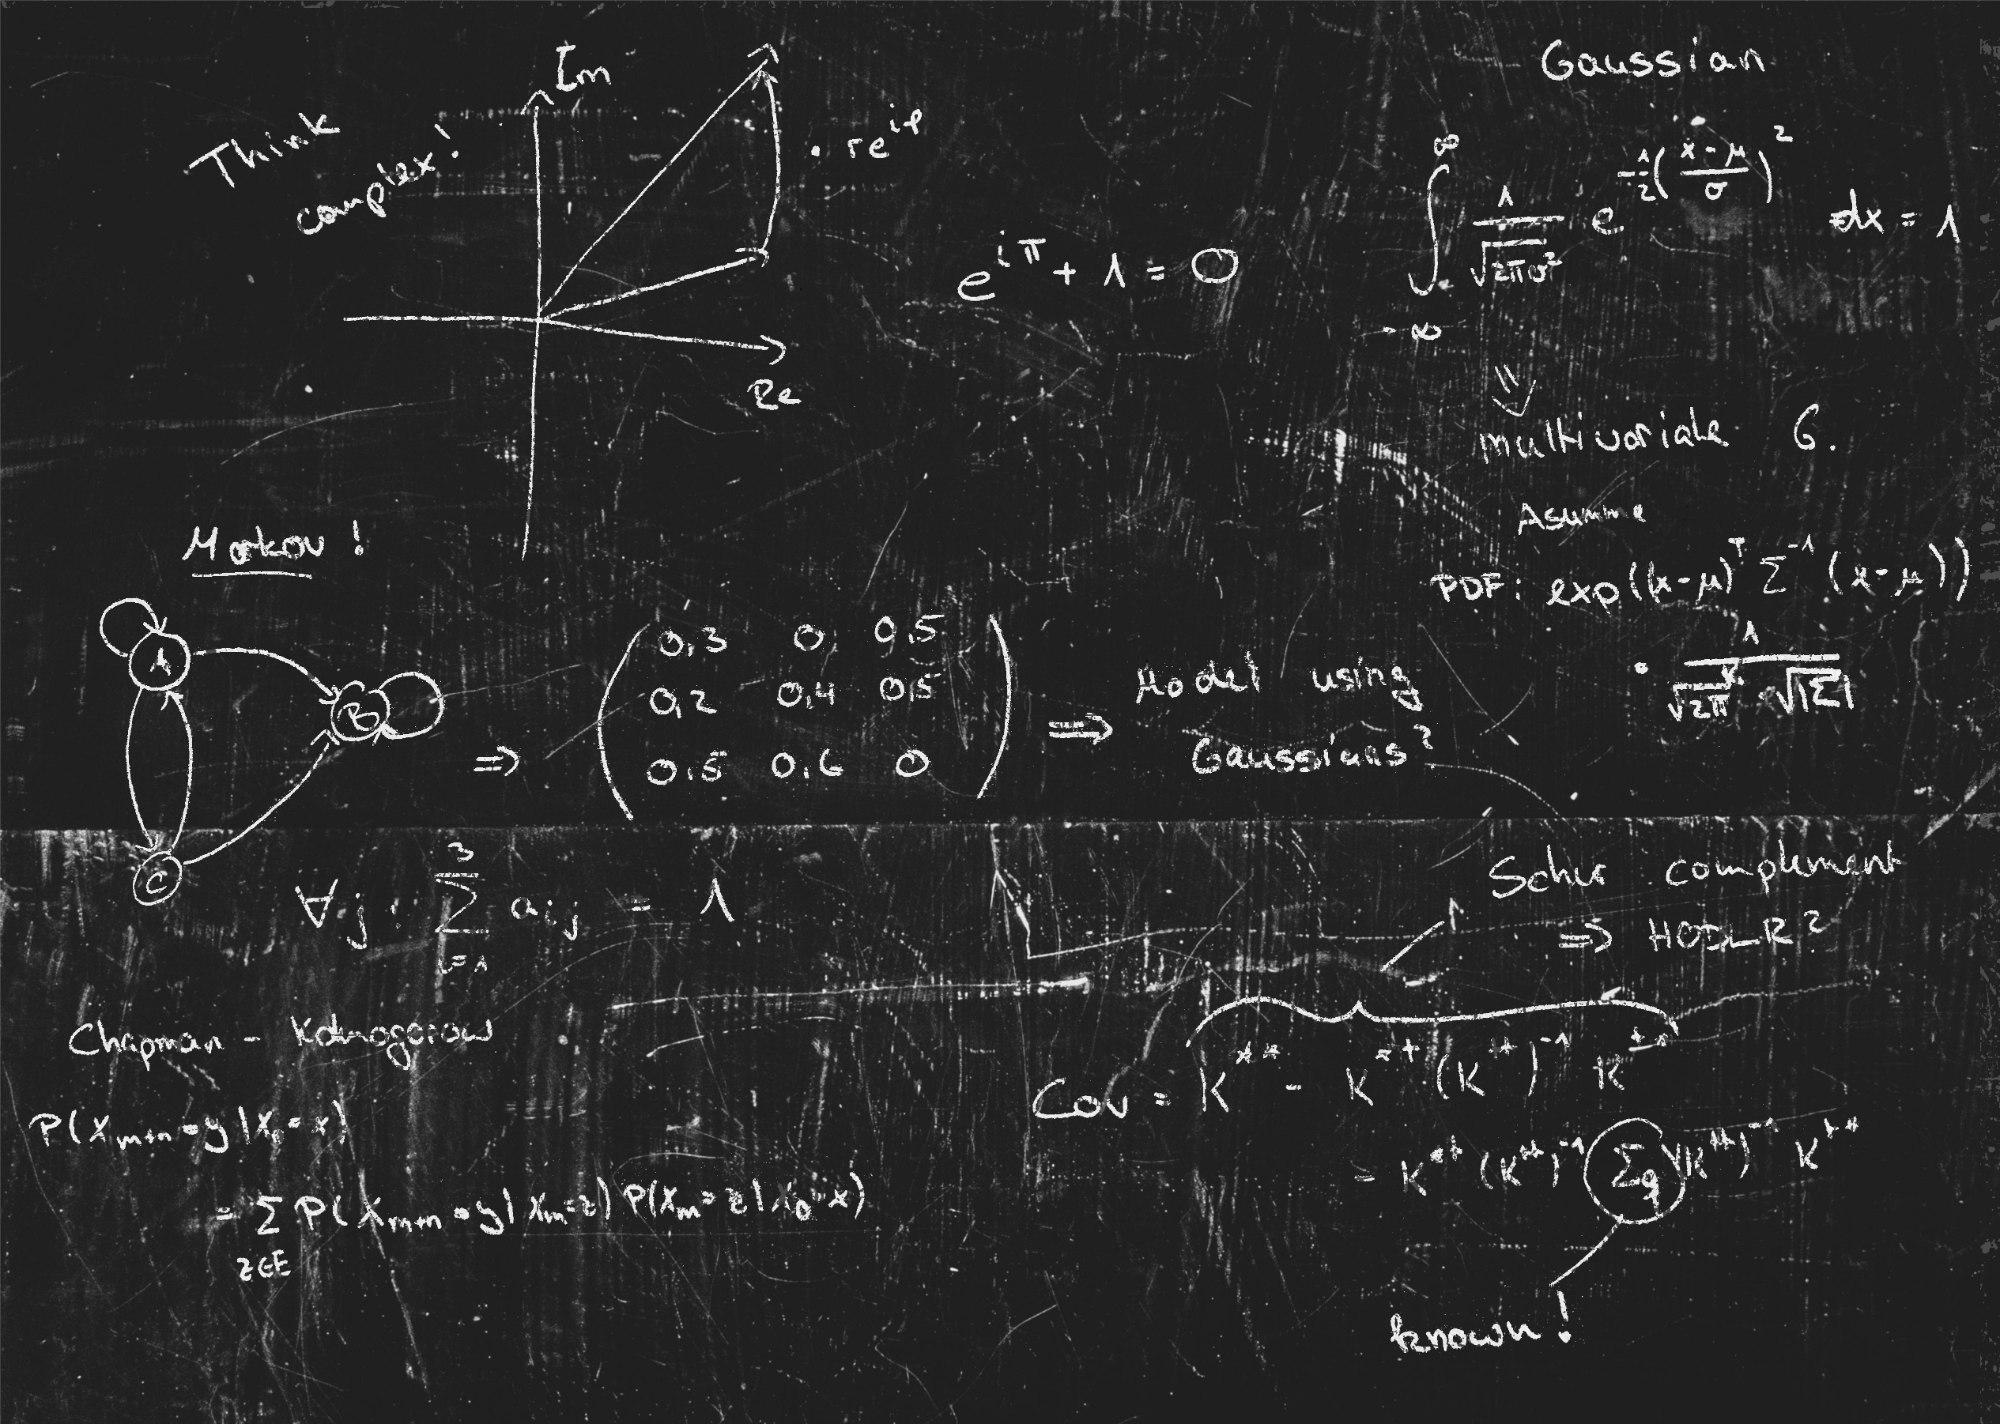 Think
complex!
Im
· re^{iφ}
Re
e^{iπ} + 1 = 0
Gaussian
∫_{-∞}^{∞} 1/√(2πσ²) e^{-1/2((x-μ)/σ)²} dx = 1
⇓
multivariate G.
Asumme
PDF: exp((x-μ)^T Σ^{-1} (x-μ))
· 1/(√(2π)^k · √|Σ|)
Markov!
A
B
C
⇒
0,3 0, 0,5
0,2 0,4 0,5
0,5 0,6 0
⇒ Model using
Gaussians?
∀j: Σ_{i=1}^{3} a_{ij} = 1
Chapman - Kolmogorow
P(X_{m+n} = y | X_0 = x)
= Σ_{z∈E} P(X_{m+n} = y | X_m = z) P(X_m = z | X_0 = x)
Schur complement
⇒ HODLR?
Cov = K^{**} - K^{*+} (K^{++})^{-1} K^{+*}
= K^{*+} (K^{++})^{-1} Σ_q (K^{++})^{-1} K^{+*}
known!